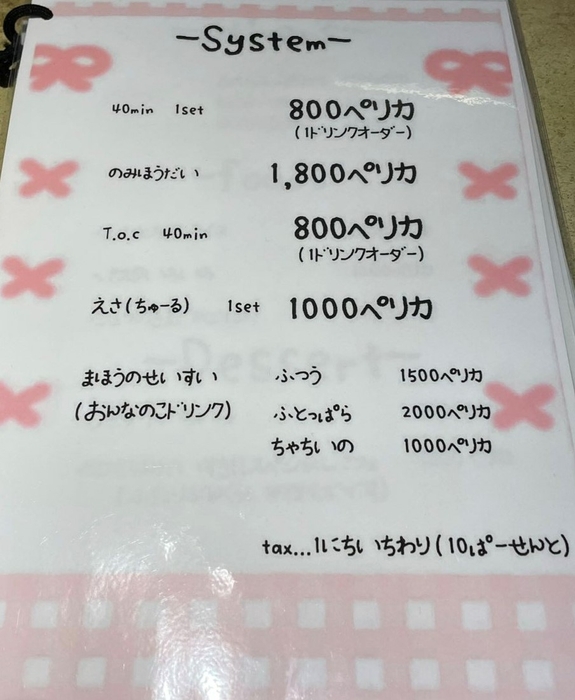 -System-
40min 1set 800ペリカ
(1ドリンクオーダー)
のみほうだい 1,800ペリカ
T.o.c 40min 800ペリカ
(1ドリンクオーダー)
えさ(ちゅーる) 1set 1000ペリカ
まほうのせいすい ふつう 1500ペリカ
(おんなのこドリンク) ふとっぱら 2000ペリカ
ちゃちいの 1000ペリカ
tax...1にちいちわり(10ぱーせんと)
-Dessert-